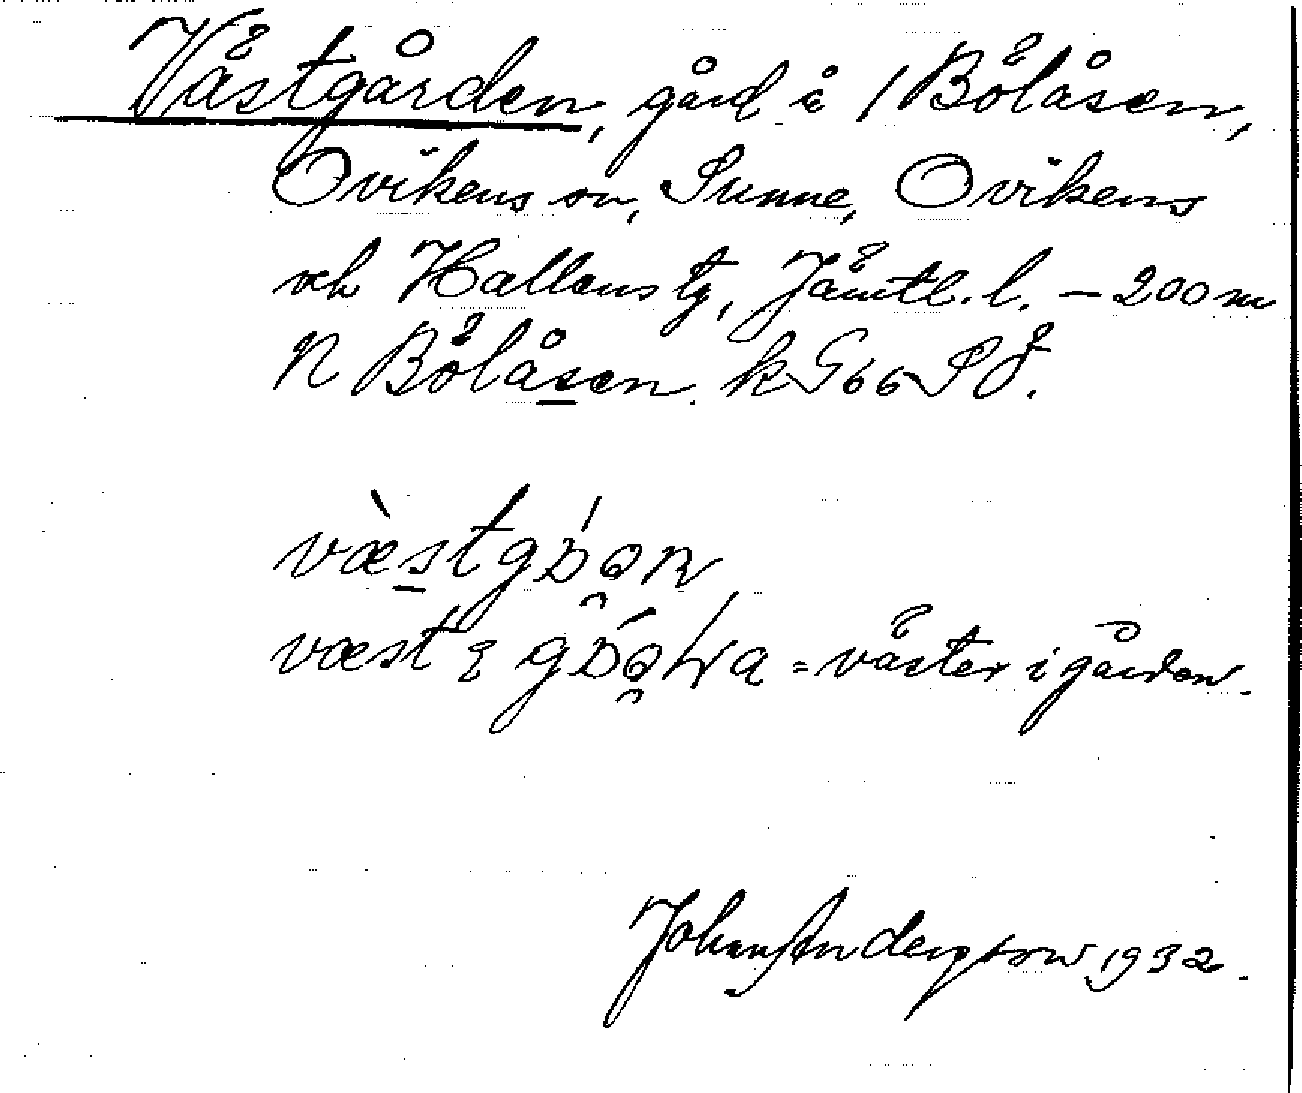 Västgården, gård i /Bölåsen,
Ovikens sn, Sunne, Ovikens
och Hallens tg, Jämtl. l. – 200 m
N Bölåsen. k G 66 SÖ.
væ̀stgɒ́ən
væst
= väster i gården.
Johan Andersson, 1932.